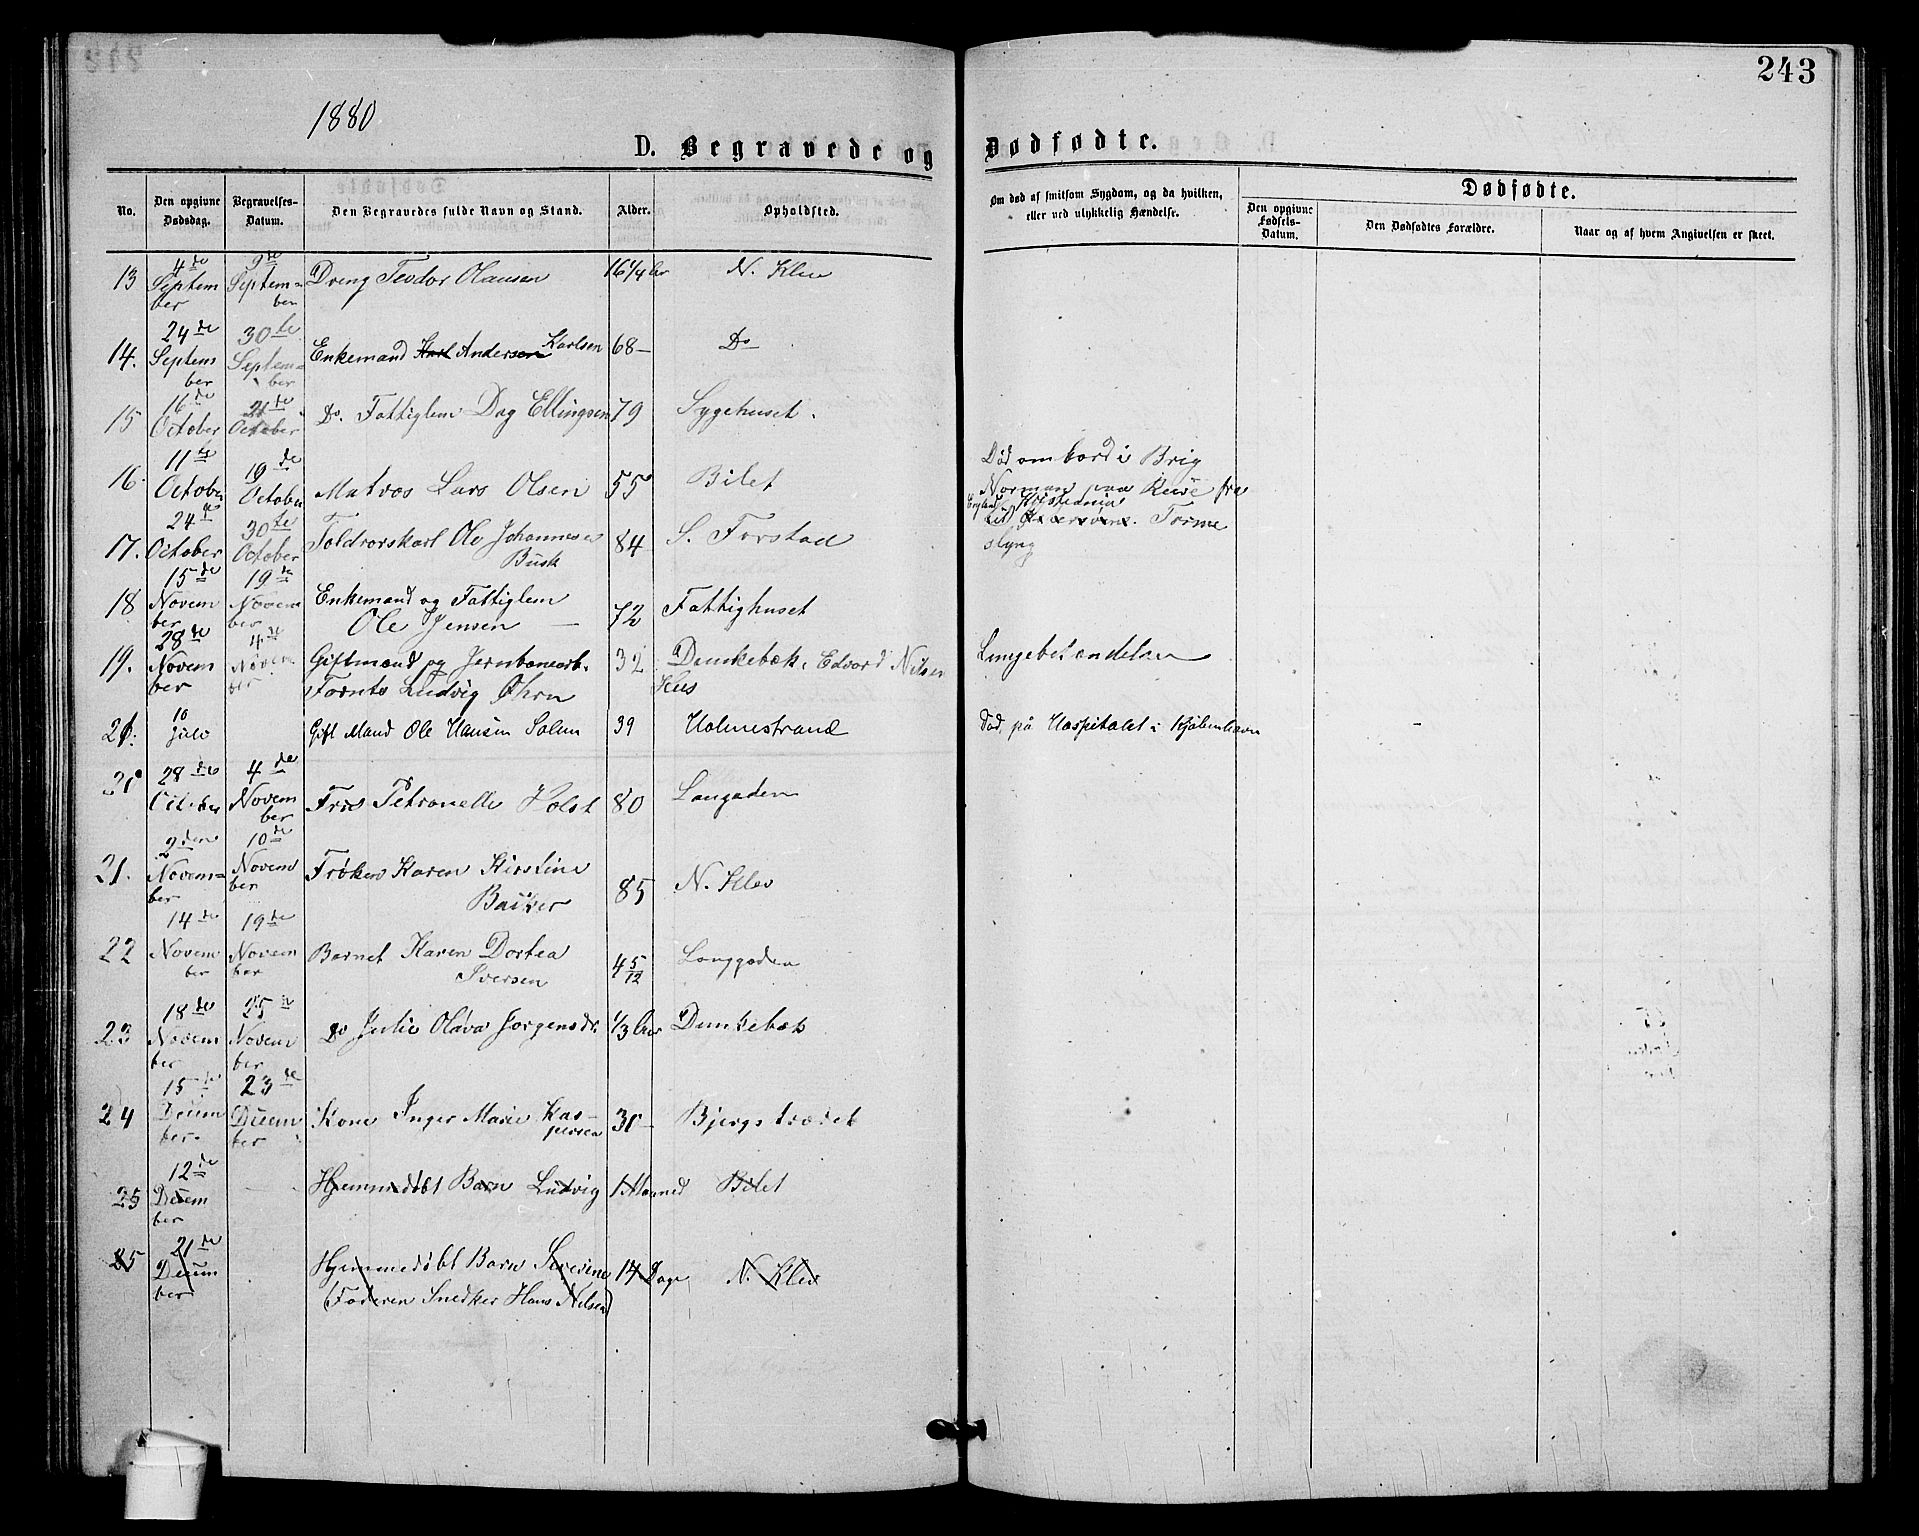 243
1880
D. Begravede og Dødfødte.
No. Den opgivne Dødsdag. Begravelses-Datum. Den Begravedes fulde Navn og Stand. Alder. Opholdsted. Om død af smitsom Sygdom, og da hvilken, eller ved ulykkelig Hændelse. Dødfødte.
Den opgivne Fødsels-Datum. Den Dødfødtes Forældre. Naar og af hvem Angivelsen er skeet.
13 4de September 9de September Dreng Teodor Olausen 16 1/4 Aar N. Klev
14. 24de September 30te September Enkemand Karl Andersen Karlsen 68 – Do
15 16de October 21de October Do. Fattiglem Dag Ellingsen 79 Sygehuset.
16. 11te October 19de October Matros Lars Olsen 55 Bilet Død ombord i Brig
Norman paa Reise fra
England Kristiania
til Tørme
slyng
17. 24de October 30te October Toldrorskarl Ole Johannesen 84 – S. Forstad
Busk
18 15de November 19de November Enkemand og Fattiglem
Ole Jensen – 72 Fattighuset
19. 28de November 4de November Giftmand og Jernbanearb. 32 Dunkebæk, Edvard Nilsen Lungebetændelse
Ludvig Øhrn Hus
21. 10 Julo Gift Mand Ole Hansen Solem 39 Holmestrand Død på Hospitalet i Kjøbenhavn
28de October 4de November Petronelle Holst 80 Langaden
21. 2den November 10de November Frøken Karen Kirstine
Bakker 85 N. Klev
22 14de November 19de November Barnet Karen Dortea
Iversen 4 5/12 Langgaden
23 18de November 25 November Do Julie Olava Jorgensdr. 1/3 Aar Dunkebæk
24 15de December 23de December Kone Inger Marie Kas-
persen 31 – Bjergstrædet
25 12de December – Hjemmedøbt Barn Ludvig 1 Maaned Bilet
25 21de December Hjemmedøbt Barn Severine 14 Dage N. Klev
(Faderen Snedker Hans Nilsen)